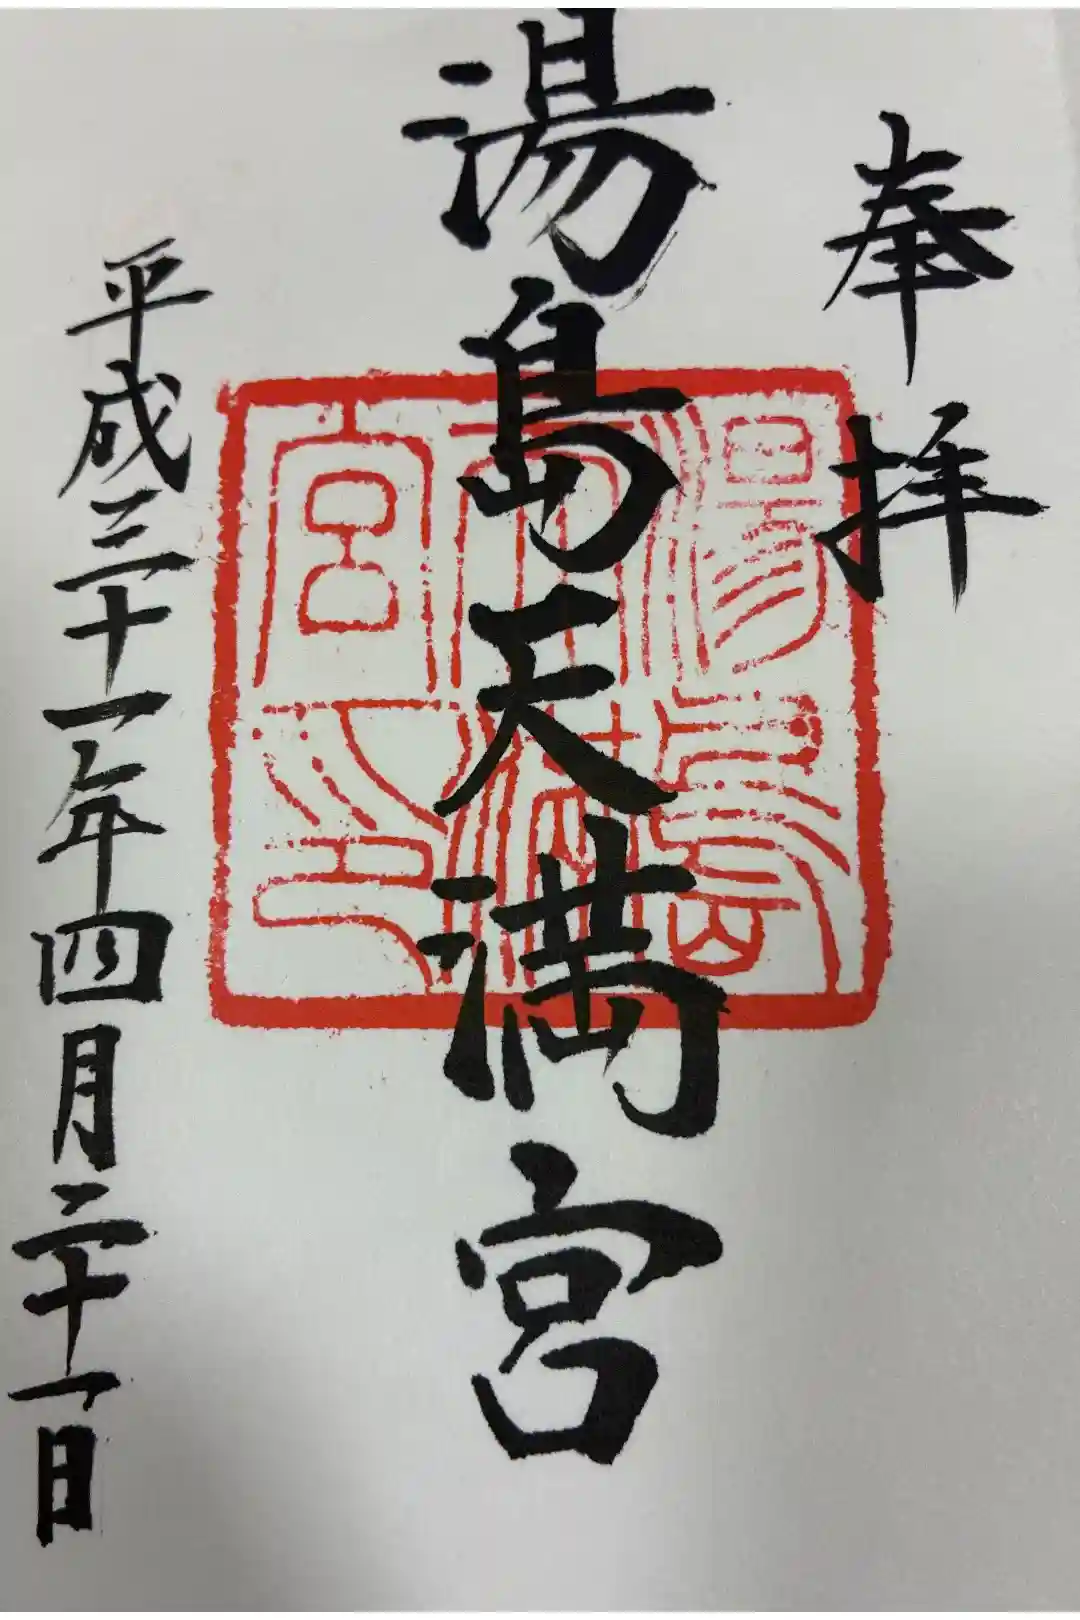 奉拝
湯島天満宮
湯島
天満
宮印
平成三十一年四月二十一日